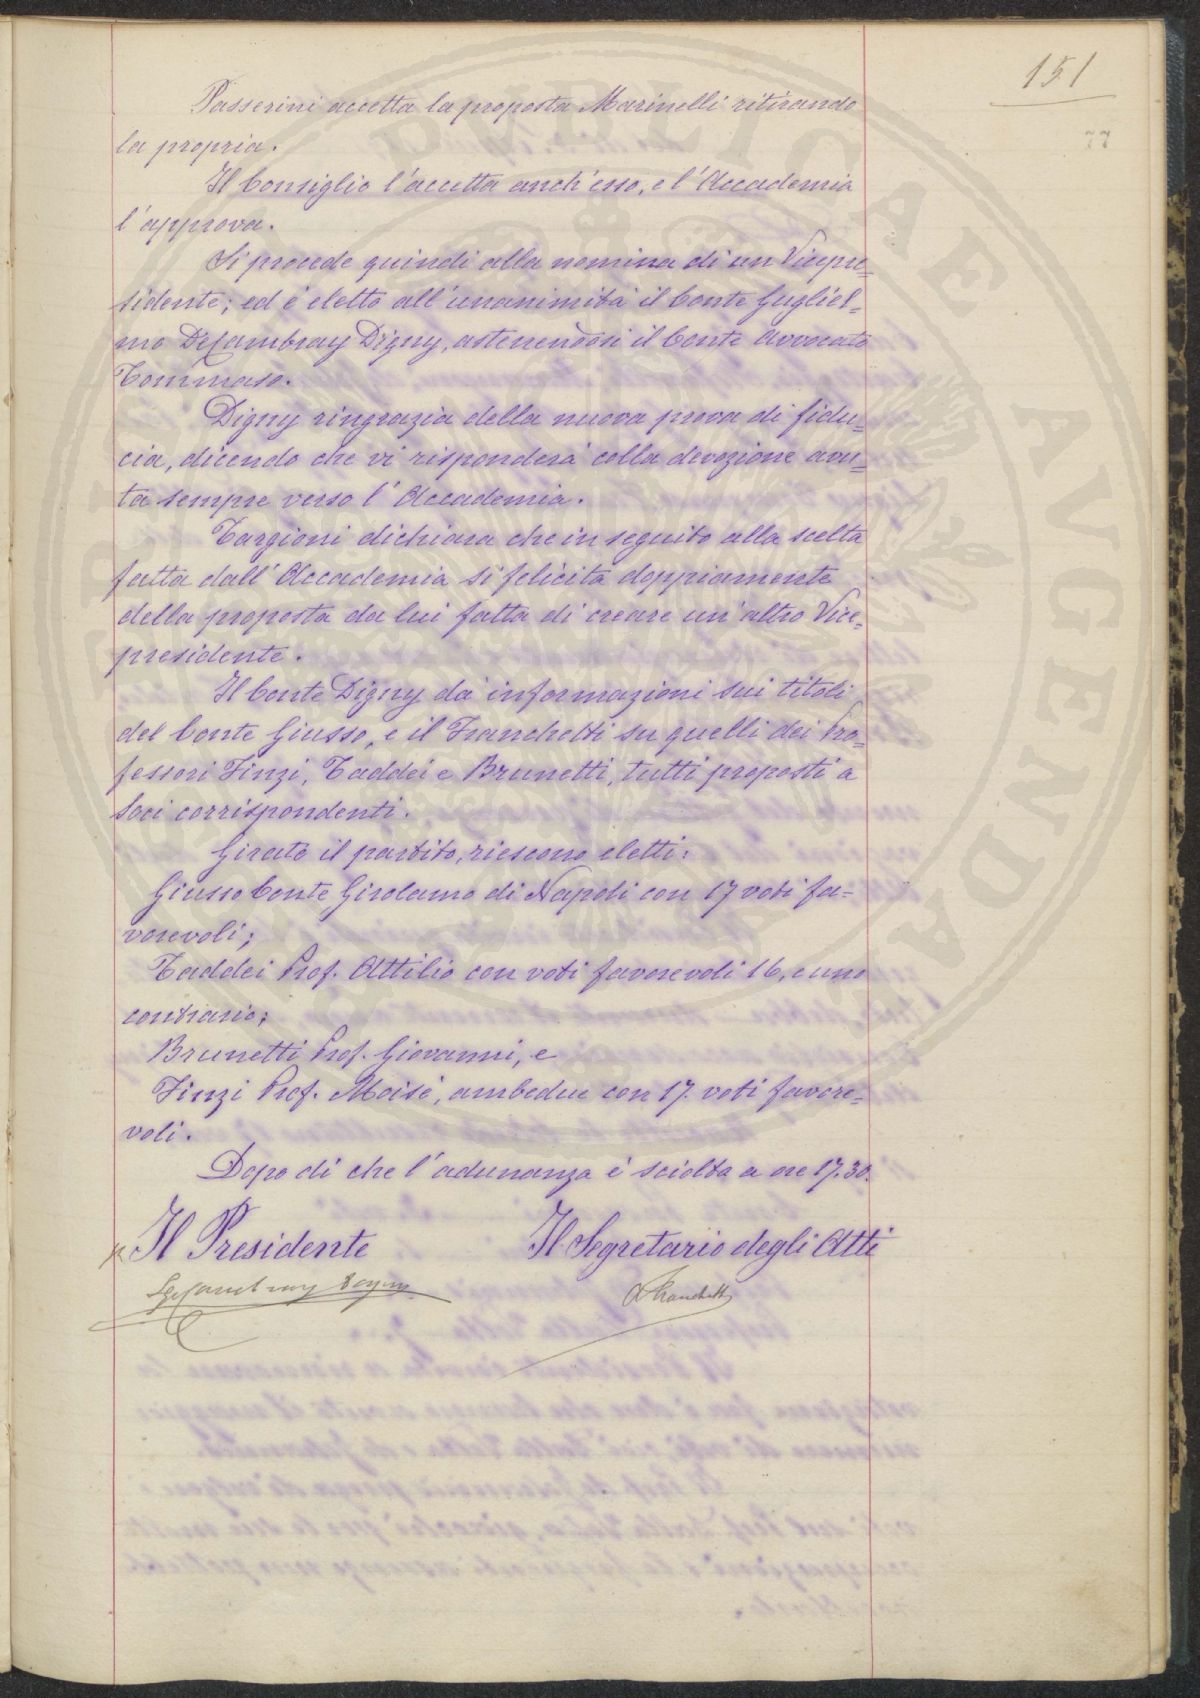 151
77
Passerini accetta la proposta Marinelli ritirando
la propria.
Il Consiglio l'accetta anch'esso, e l'Accademia
l'approva.
Si procede quindi alla nomina di un Vicepre=
sidente; ed è eletto all'unanimità il Conte Gugliel=
mo DeCambray Digny, astenendosi il Conte Avvocato
Tommaso.
Digny ringrazia della nuova prova di fidu=
cia, dicendo che vi risponderà colla devozione avu=
ta sempre verso l'Accademia.
Targioni dichiara che in seguito alla scelta
fatta dall'Accademia si felicita doppiamente
della proposta da lui fatta di creare un'altro Vice=
presidente.
Il Conte Digny dà informazioni sui titoli
del Conte Giusso, e il Franchetti su quelli dei Pro=
fessori Finzi, Taddei e Brunetti, tutti proposti a
Soci corrispondenti.
Girato il partito, riescono eletti:
Giusso Conte Girolamo di Napoli con 17 voti fa=
vorevoli;
Taddei Prof. Attilio con voti favorevoli 16, e uno
contrario;
Brunetti Prof. Giovanni, e
Finzi Prof. Moisè, ambedue con 17. voti favore=
voli.
Dopo di che l'adunanza è sciolta a ore 17.30.
p. Il Presidente
Il Segretario degli Atti
DeCambray Digny
Franchetti
PUBLICAE AVGENDAE